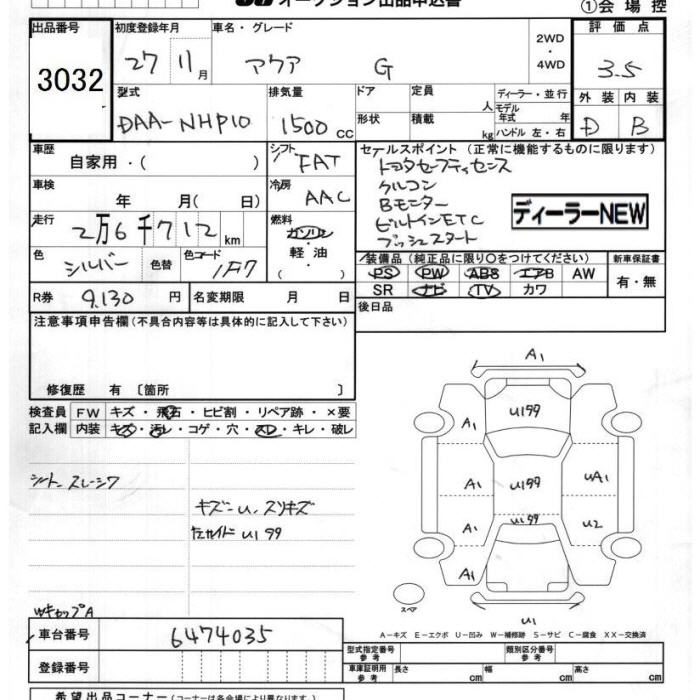 オークション出品申込書 ①会場控
出品番号 初度登録年月 車名・グレード 評価点
3032 27 11月 アクア G 2WD・4WD 3.5
型式 排気量 ドア 定員 人 ディーラー・並行
モデル年式 年 外装 内装
DAA-NHP10 1500cc 形状 積載 kg ハンドル 左・右 D B
車歴 シフト セールスポイント(正常に機能するものに限ります)
自家用・( ) FAT トヨタセーフティセンス
車検 冷房 クルコン
年 月( 日) AAC Bモニター
走行 燃料 ビルトインETC ディーラーNEW
2万6千712km ガソリン プッシュスタート
色 色替 色コード 軽油
シルバー 1F7 ・( )
装備品(純正品に限り○をつけてください) 新車保証書
PS PW ABS エアB AW 有・無
SR ナビ TV カワ
R券 9,130円 名変期限 月 日 後日品
注意事項申告欄(不具合内容等は具体的に記入して下さい)
修復歴 有 〔箇所 〕
検査員 FW キズ・飛石・ヒビ割・リペア跡・×要
記入欄 内装 キズ・汚レ・コゲ・穴・スレ・キレ・破レ
シート スレーシワ
キズ-U、スリキズ
U199
WキャップA
A1
A1 U199
A1 U199 UA1
A1 U199 U2
A1
スペア
U1
A-キズ E-エクボ U-凹み W-補修跡 S-サビ C-腐食 XX-交換済
車台番号 6474035 型式指定番号 参考 類別区分番号 参考
登録番号 車庫証明用 参考 長さ cm 幅 cm 高さ cm
希望出品コーナー(コーナーは各会場により異なります)